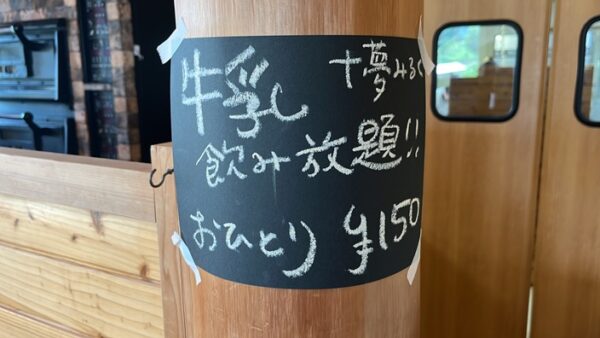 牛乳 十夢みるく
飲み放題!!
おひとり ¥150